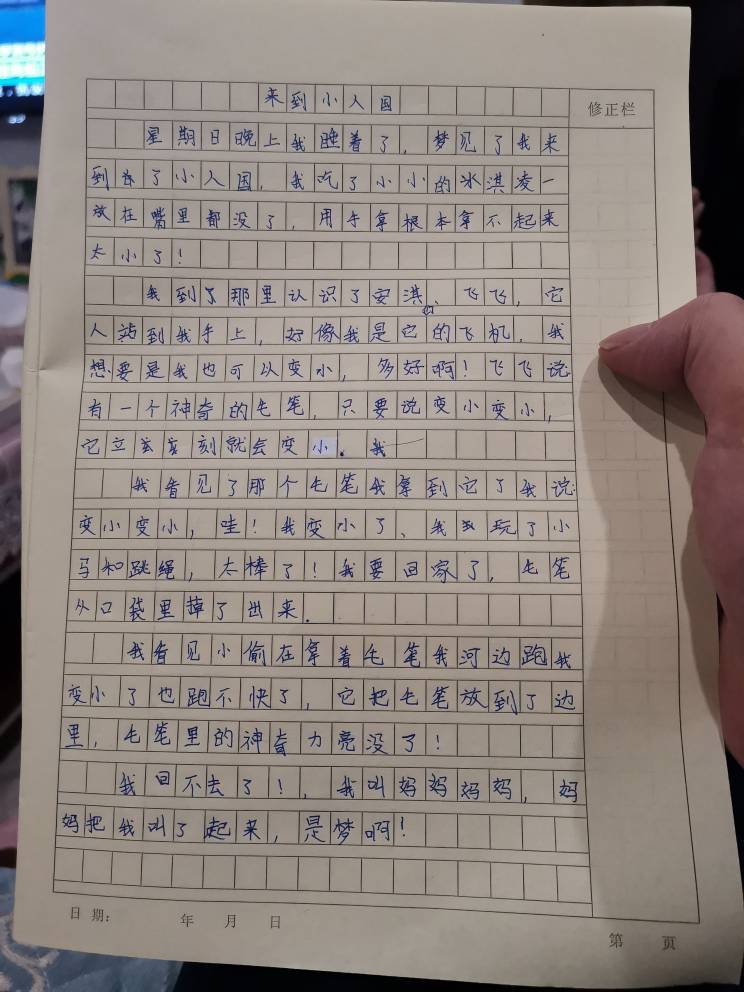 来到小人国
修正栏
星期日晚上我睡着了，梦见了我来
到了小人国，我吃了小小的冰淇凌一
放在嘴里都没了，用手拿根本拿不起来
太小了！
我到了那里认识了安淇、飞飞，它
人站到我手上，好像我是它的飞机，我
想要是我也可以变小，多好啊！飞飞说
有一个神奇的毛笔，只要说变小变小，
它立刻就会变小。我
我看见了那个毛笔我拿到它了我说
变小变小，哇！我变小了、我玩了小
马和跳绳，太棒了！我要回家了，毛笔
从口袋里掉了出来．
我看见小偷在拿着毛笔我河边跑我
变小了也跑不快了，它把毛笔放到了边
里，毛笔里的神奇力亮没了！
我回不去了！，我叫妈妈妈妈，妈
妈把我叫了起来，是梦啊！
日期： 年 月 日
第 页